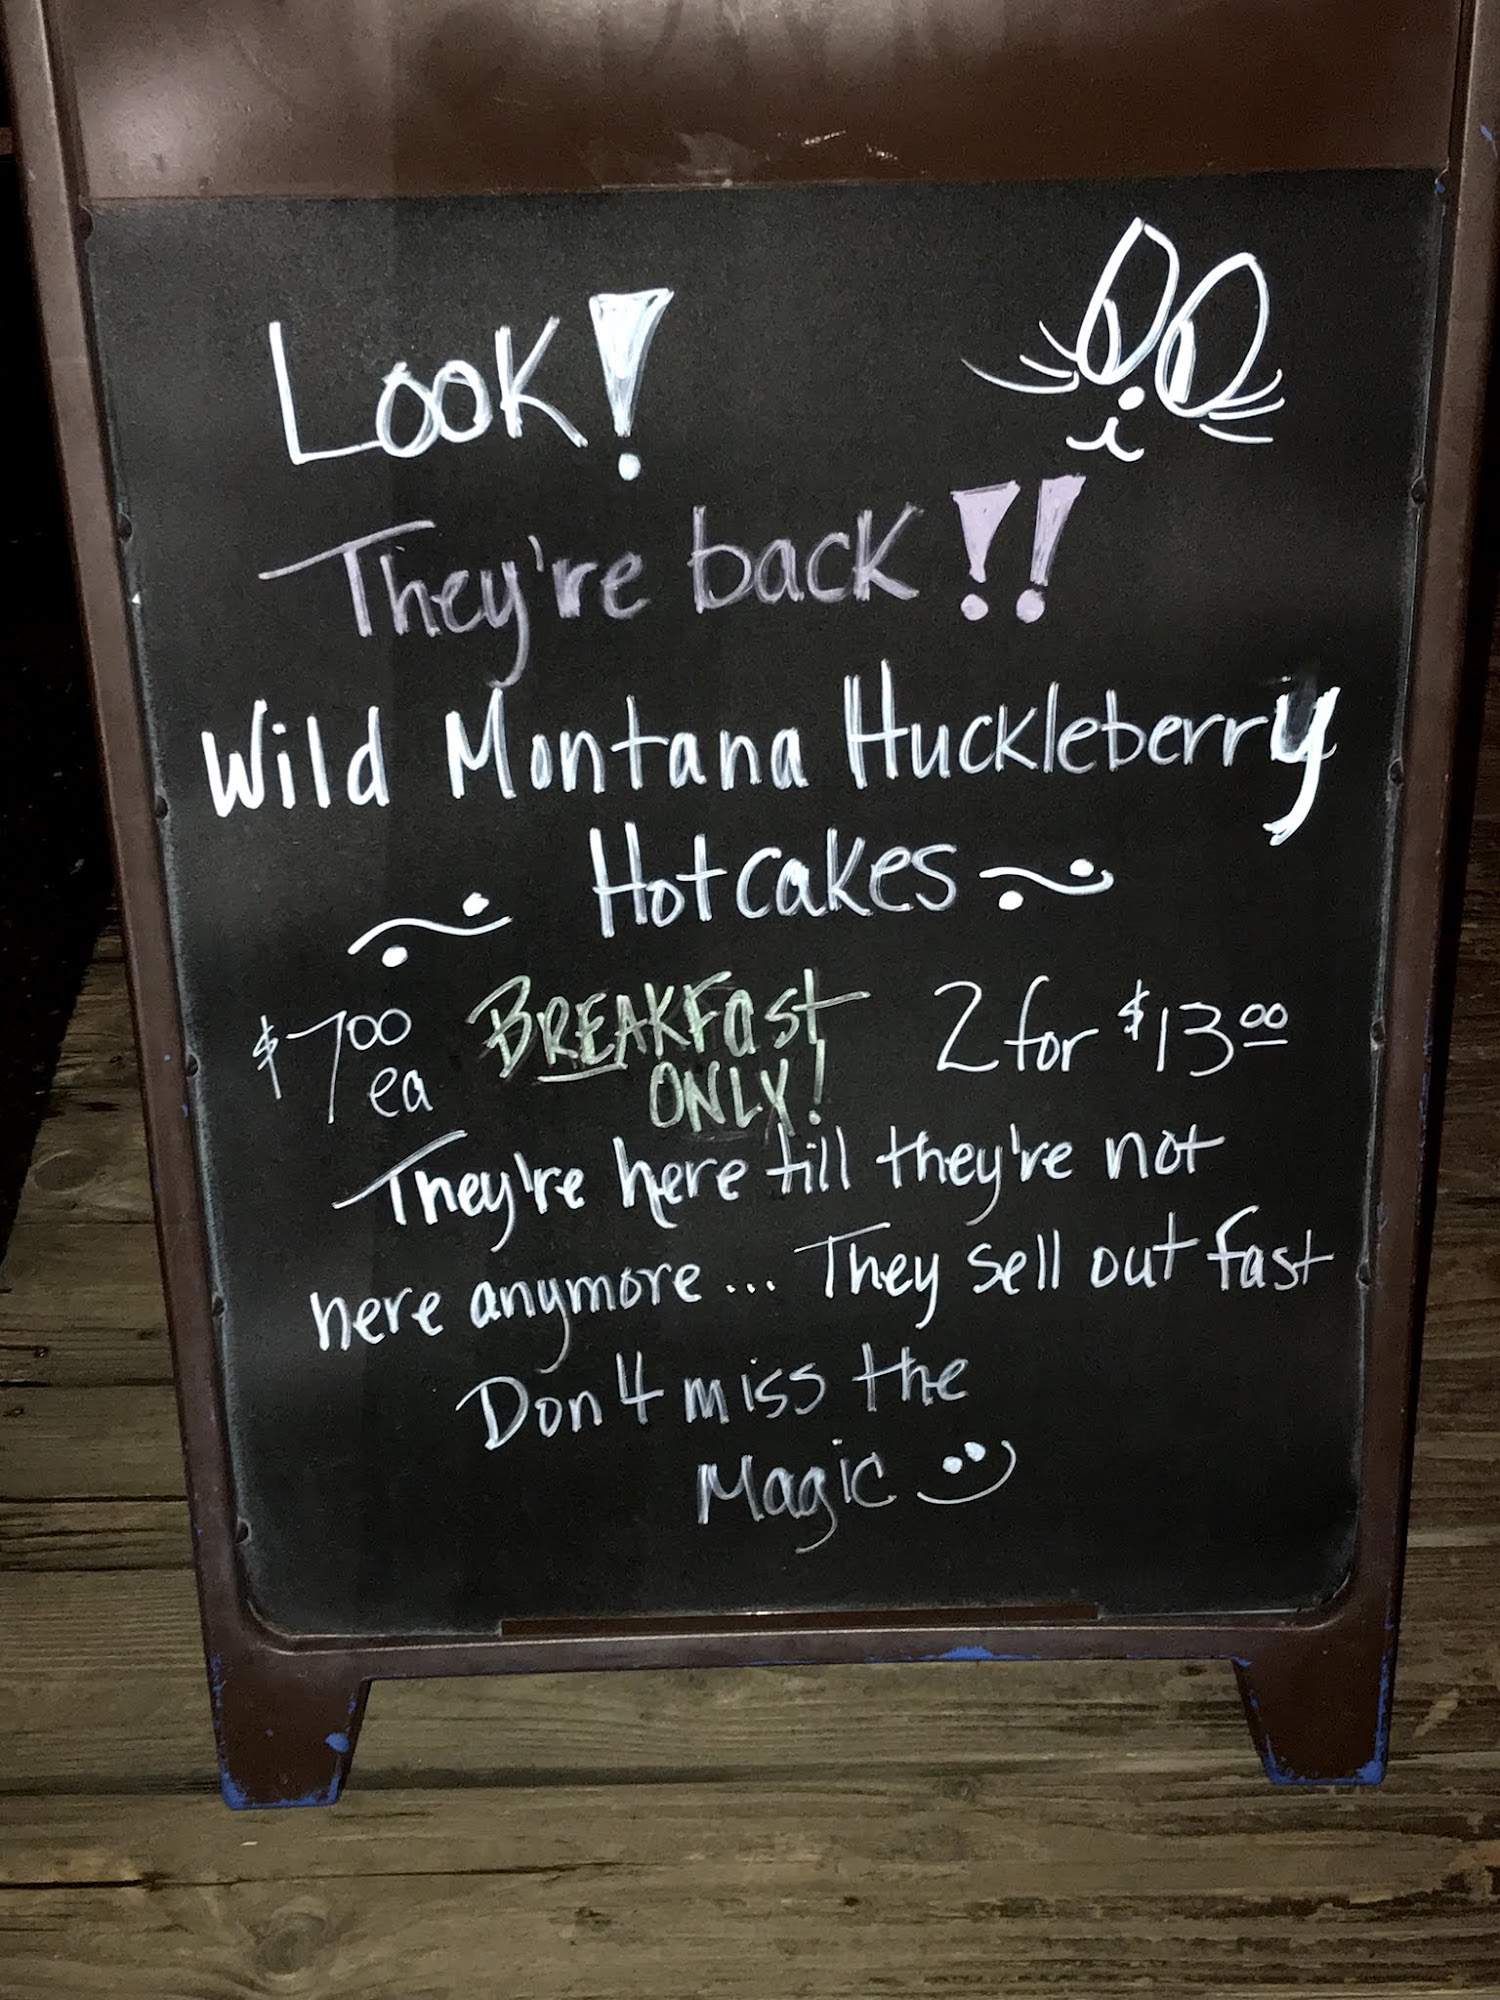 Look!
They're back!!
Wild Montana Huckleberry
Hotcakes
$7.00 ea BREAKFast ONLY! 2 for $13.00
They're here till they're not
here anymore... They sell out fast
Don't miss the
Magic